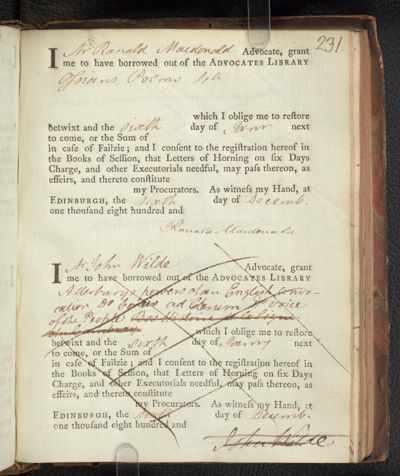 231.
I Mr Ranald Macdonald Advocate, grant
me to have borrowed out of the ADVOCATES LIBRARY
Ossians Poems 4to
which I oblige me to reſtore
betwixt and the sixth day of next
to come, or the Sum of
in caſe of Failzie; and I conſent to the regiſtration hereof in
the Books of Seſſion, that Letters of Horning on ſix Days
Charge, and other Executorials needful, may paſs thereon, as
effeirs, and thereto conſtitute
my Procurators. As witneſs my Hand, at
EDINBURGH, the sixth day of Decemb.
one thouſand eight hundred and
Ranald Macdonald
I Mr John Wilde Advocate, grant
me to have borrowed out of the ADVOCATES LIBRARY
Atterbury's powers of an English Convo-
cation Do ad Clerum Voice
of the People
which I oblige me to reſtore
betwixt and the sixth day of next
to come, or the Sum of
in caſe of Failzie; and I conſent to the regiſtration hereof in
the Books of Seſſion, that Letters of Horning on ſix Days
Charge, and other Executorials needful, may paſs thereon, as
effeirs, and thereto conſtitute
my Procurators. As witneſs my Hand, at
EDINBURGH, the sixth day of Decemb.
one thouſand eight hundred and
John Wilde